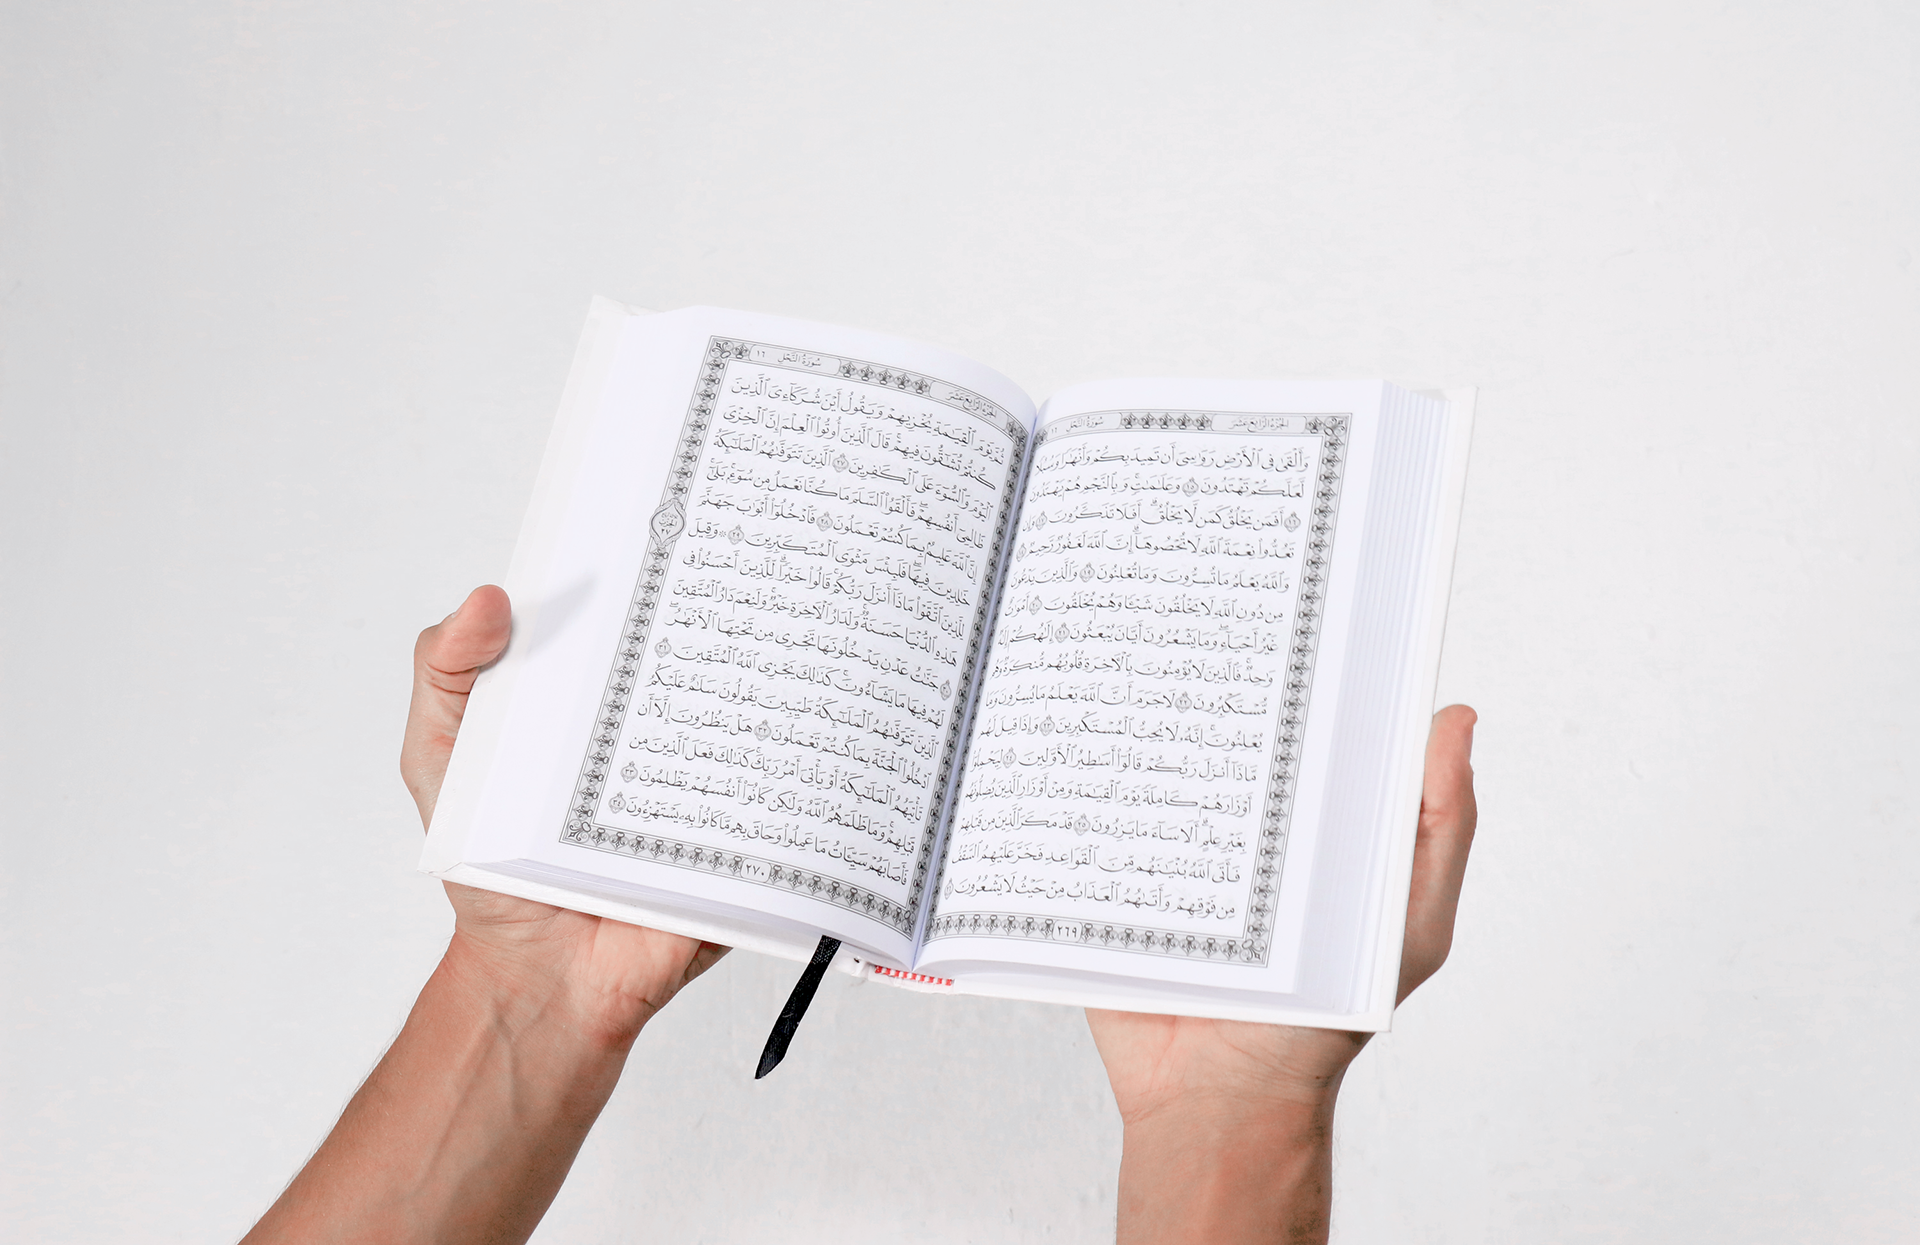 الجُزْءُ الرَّابِعَ عَشَرَ سُورَةُ النَّحْلِ ١٦
وَأَلْقَىٰ فِي ٱلْأَرْضِ رَوَٰسِيَ أَن تَمِيدَ بِكُمْ وَأَنْهَٰرًا وَسُبُلًا
لَّعَلَّكُمْ تَهْتَدُونَ ١٥ وَعَلَٰمَٰتٍ وَبِٱلنَّجْمِ هُمْ يَهْتَدُونَ
١٦ أَفَمَن يَخْلُقُ كَمَن لَّا يَخْلُقُ أَفَلَا تَذَكَّرُونَ ١٧ وَإِن
تَعُدُّوا۟ نِعْمَةَ ٱللَّهِ لَا تُحْصُوهَآ إِنَّ ٱللَّهَ لَغَفُورٌ رَّحِيمٌ ١٨
وَٱللَّهُ يَعْلَمُ مَا تُسِرُّونَ وَمَا تُعْلِنُونَ ١٩ وَٱلَّذِينَ يَدْعُونَ
مِن دُونِ ٱللَّهِ لَا يَخْلُقُونَ شَيْـًٔا وَهُمْ يُخْلَقُونَ ٢٠ أَمْوَٰتٌ
غَيْرُ أَحْيَآءٍ وَمَا يَشْعُرُونَ أَيَّانَ يُبْعَثُونَ ٢١ إِلَٰهُكُمْ إِلَٰهٌ
وَٰحِدٌ فَٱلَّذِينَ لَا يُؤْمِنُونَ بِٱلْءَاخِرَةِ قُلُوبُهُم مُّنكِرَةٌ وَهُم
مُّسْتَكْبِرُونَ ٢٢ لَا جَرَمَ أَنَّ ٱللَّهَ يَعْلَمُ مَا يُسِرُّونَ وَمَا
يُعْلِنُونَ إِنَّهُۥ لَا يُحِبُّ ٱلْمُسْتَكْبِرِينَ ٢٣ وَإِذَا قِيلَ لَهُم
مَّاذَآ أَنزَلَ رَبُّكُمْ قَالُوٓا۟ أَسَٰطِيرُ ٱلْأَوَّلِينَ ٢٤ لِيَحْمِلُوٓا۟
أَوْزَارَهُمْ كَامِلَةً يَوْمَ ٱلْقِيَٰمَةِ وَمِنْ أَوْزَارِ ٱلَّذِينَ يُضِلُّونَهُم
بِغَيْرِ عِلْمٍ أَلَا سَآءَ مَا يَزِرُونَ ٢٥ قَدْ مَكَرَ ٱلَّذِينَ مِن قَبْلِهِمْ
فَأَتَى ٱللَّهُ بُنْيَٰنَهُم مِّنَ ٱلْقَوَاعِدِ فَخَرَّ عَلَيْهِمُ ٱلسَّقْفُ
مِن فَوْقِهِمْ وَأَتَىٰهُمُ ٱلْعَذَابُ مِنْ حَيْثُ لَا يَشْعُرُونَ ٢٦
٢٦٩
الجُزْءُ الرَّابِعَ عَشَرَ سُورَةُ النَّحْلِ ١٦
ثُمَّ يَوْمَ ٱلْقِيَٰمَةِ يُخْزِيهِمْ وَيَقُولُ أَيْنَ شُرَكَآءِىَ ٱلَّذِينَ
كُنتُمْ تُشَٰٓقُّونَ فِيهِمْ قَالَ ٱلَّذِينَ أُوتُوا۟ ٱلْعِلْمَ إِنَّ ٱلْخِزْىَ
ٱلْيَوْمَ وَٱلسُّوٓءَ عَلَى ٱلْكَٰفِرِينَ ٢٧ ٱلَّذِينَ تَتَوَفَّىٰهُمُ ٱلْمَلَٰٓئِكَةُ
ظَالِمِىٓ أَنفُسِهِمْ فَأَلْقَوُا۟ ٱلسَّلَمَ مَا كُنَّا نَعْمَلُ مِن سُوٓءٍ بَلَىٰٓ
إِنَّ ٱللَّهَ عَلِيمٌۢ بِمَا كُنتُمْ تَعْمَلُونَ ٢٨ فَٱدْخُلُوٓا۟ أَبْوَٰبَ جَهَنَّمَ
خَٰلِدِينَ فِيهَا فَلَبِئْسَ مَثْوَى ٱلْمُتَكَبِّرِينَ ٢٩ ۞ وَقِيلَ
لِلَّذِينَ ٱتَّقَوْا۟ مَاذَآ أَنزَلَ رَبُّكُمْ قَالُوا۟ خَيْرًا لِّلَّذِينَ أَحْسَنُوا۟ فِى
هَٰذِهِ ٱلدُّنْيَا حَسَنَةٌ وَلَدَارُ ٱلْءَاخِرَةِ خَيْرٌ وَلَنِعْمَ دَارُ ٱلْمُتَّقِينَ
٣٠ جَنَّٰتُ عَدْنٍ يَدْخُلُونَهَا تَجْرِى مِن تَحْتِهَا ٱلْأَنْهَٰرُ
لَهُمْ فِيهَا مَا يَشَآءُونَ كَذَٰلِكَ يَجْزِى ٱللَّهُ ٱلْمُتَّقِينَ ٣١
ٱلَّذِينَ تَتَوَفَّىٰهُمُ ٱلْمَلَٰٓئِكَةُ طَيِّبِينَ يَقُولُونَ سَلَٰمٌ عَلَيْكُمُ
ٱدْخُلُوا۟ ٱلْجَنَّةَ بِمَا كُنتُمْ تَعْمَلُونَ ٣٢ هَلْ يَنظُرُونَ إِلَّآ أَن
تَأْتِيَهُمُ ٱلْمَلَٰٓئِكَةُ أَوْ يَأْتِىَ أَمْرُ رَبِّكَ كَذَٰلِكَ فَعَلَ ٱلَّذِينَ مِن
قَبْلِهِمْ وَمَا ظَلَمَهُمُ ٱللَّهُ وَلَٰكِن كَانُوٓا۟ أَنفُسَهُمْ يَظْلِمُونَ ٣٣
فَأَصَابَهُمْ سَيِّـَٔاتُ مَا عَمِلُوا۟ وَحَاقَ بِهِم مَّا كَانُوا۟ بِهِۦ يَسْتَهْزِءُونَ ٣٤
٢٧٠